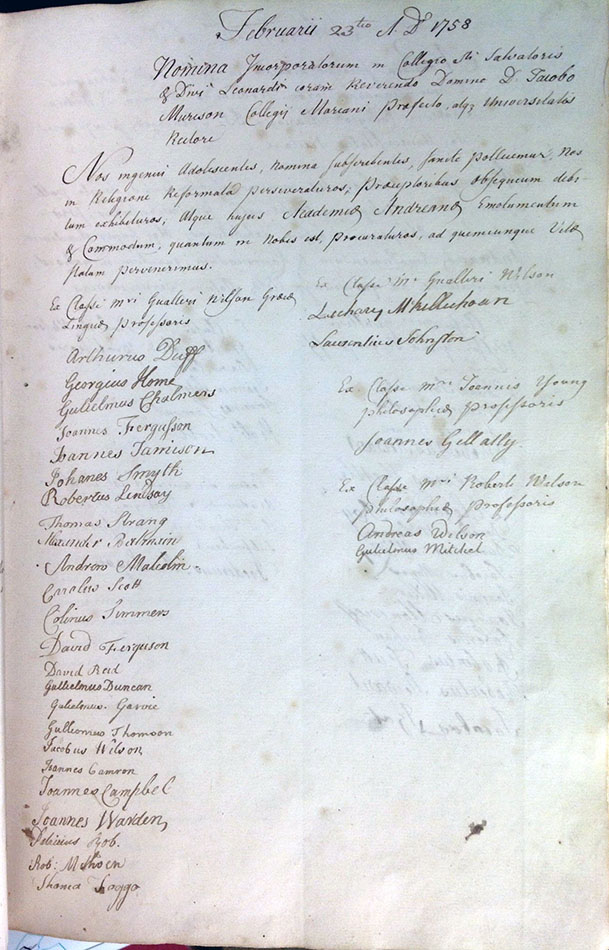 Februarii 23tio A. Di 1758
Nomina Incorporatorum in Collegio Sti Salvatoris
& Divi Leonardi coram Reverendo Domino D. Jacobo
Murison Collegij Mariani Præfecto, atq; Universitatis
Rectore
Nos ingenui Adolescentes, Nomina subscribentes, sancte pollicemur, Nos
in Religione Reformata perseveraturos, Præceptoribus obsequium debi-
tum exhibituros, Atque hujus Academiæ Andreanæ Emolumentum
& Commodum, quantum in Nobis est, procuraturos, ad quemcunque Vitæ
statum pervenerimus.
Ex Classe mri Gualteri Wilson Græcæ
Linguæ professoris
Arthurus Duff
Georgius Home
Gulielmus Chalmers
Joannes Fergusson
Joannes Jamison
Johanes Smyth
Robertus Lindsay
Thomas Strang
Alexander
Andrew Malcolm
Carolus Scott
Colinus Simmers
David Ferguson
David Reid
Gullielmus Duncan
Gulielmus Garvie
Gulliemus Thomson
Jacobus Wilson
Joannes Camron
Joannes Campbel
Joannes Warden
Rob.
Rob:
Ex Classe mri Gualteri Wilson
Laurentius Johnston
Ex Classe mri Joannis Young
philosophiæ professoris
Joannes Gellatly
Ex Classe mri Roberti Watson
philosophiæ professoris
Andreas Wilson
Gulielmus Mitchel